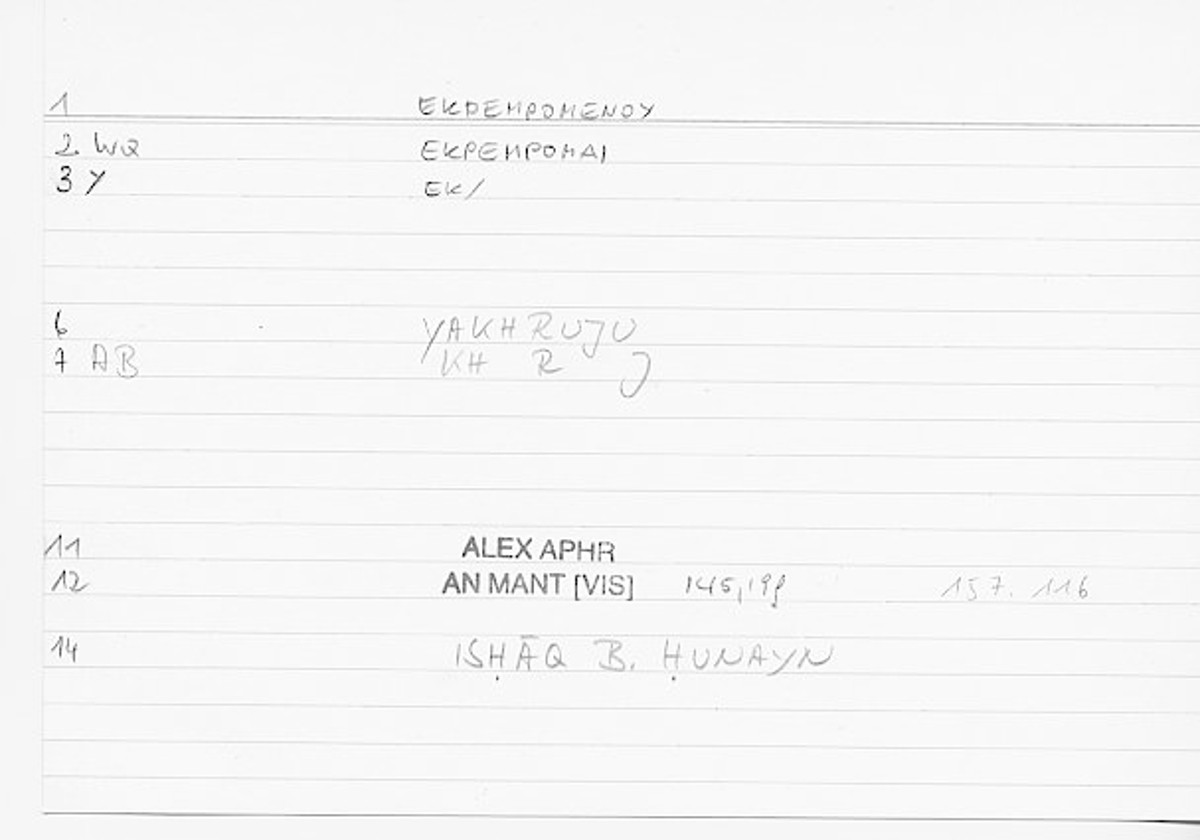 1 EKPEMPOMENOY
2 WQ EKPEMPOMAI
3 Y EK/
6 YAKHRUJU
7 AB KH R J
11 ALEX APHR
12 AN MANT [VIS] 145,19f 157. 116
14 ISḤĀQ B. ḤUNAYN